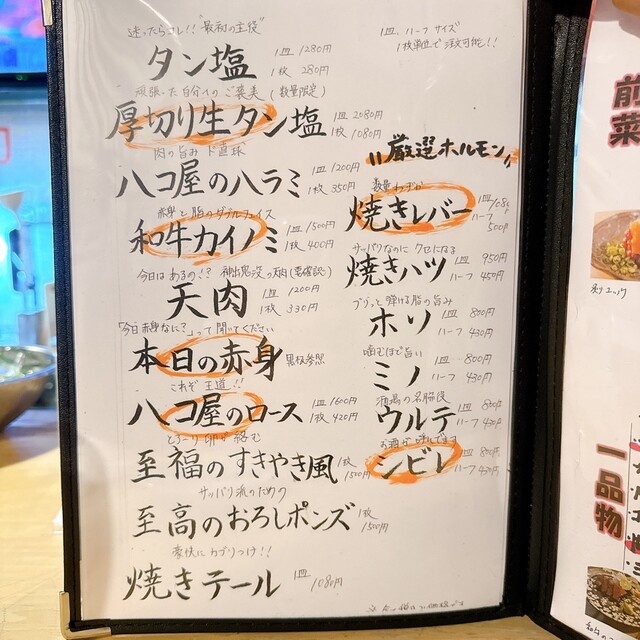 迷ったらコレ!!"最初の主役"
タン塩 1皿 1280円
1枚 280円
頑張った自分へのご褒美(数量限定)
厚切り生タン塩 1皿 2080円
1枚 1080円
肉の旨みド直球
ハコ屋のハラミ 1皿 1200円
1枚 350円
赤身と脂のダブルフェイス
和牛カイノミ 1皿 1500円
1枚 400円
今日はあるの!? 神出鬼没の天肉(要確認)
天肉 1皿 1200円
1枚 330円
「今日赤身なに?」って聞いてください
本日の赤身 黒板参照
これぞ王道!!
ハコ屋のロース 1皿 1600円
1枚 420円
とろーり卵が絡む
至福のすきやき風 1枚
1500円
サッパリ派のためのク
至高のおろしポンズ 1枚
1500円
豪快にカブりつけ!!
焼きテール 1皿
1080円
1皿、ハーフサイズ
1枚単位でご注文可能!!
厳選ホルモン
数量わずか
焼きレバー 1皿 1080
ハーフ 500円
サッパリなのにクセになる
焼きハツ 1皿 950円
ハーフ 450円
プリッと弾ける脂の旨み
ホソ 1皿 800円
ハーフ 430円
噛むほど旨い
ミノ 1皿 800円
ハーフ 430円
酒場の名脇役
ウルテ 1皿 800円
ハーフ 430円
お酒が呼んでます
シビレ 1皿 800円
ハーフ 430円
前菜
一品物